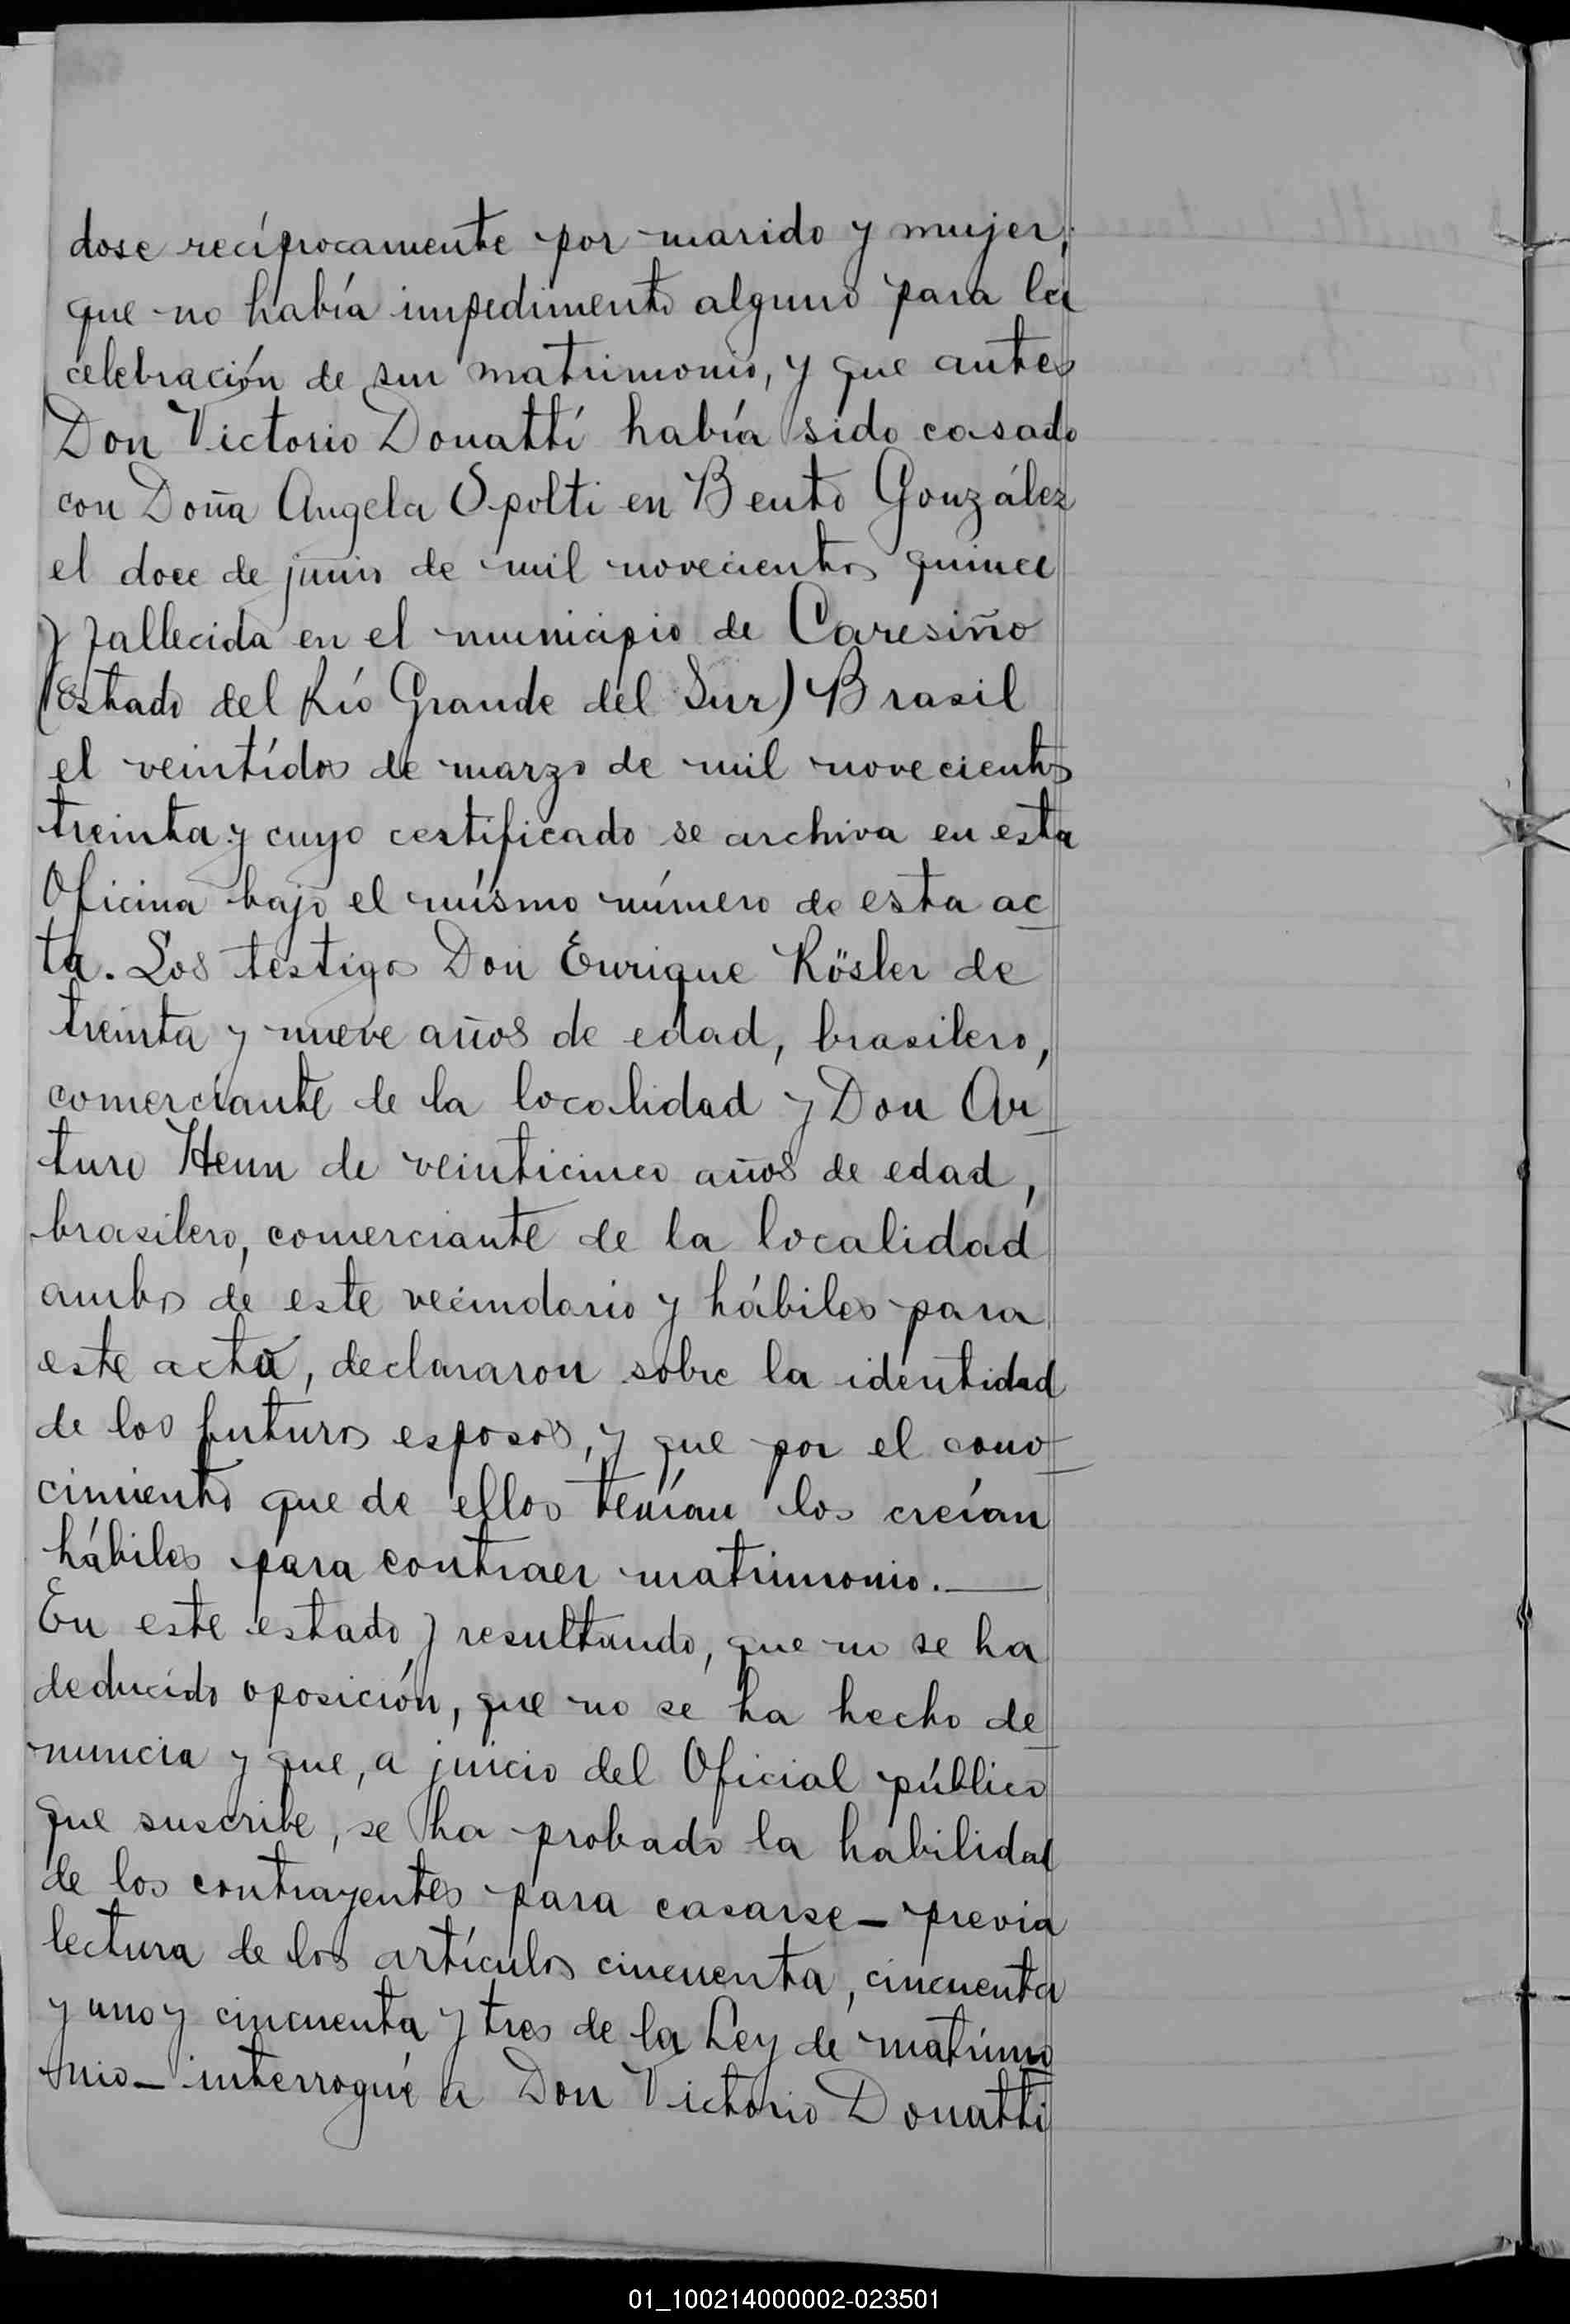 dose recíprocamente por marido y mujer;
que no había impedimento alguno para la
celebración de su matrimonio, y que antes
Don Victorio Donatti había sido casado
con Doña Angela Spolti en Bento González
el doce de junio de mil novecientos quince
y fallecida en el municipio de Caresiño
(Estado del Río Grande del Sur) Brasil
el veintidos de marzo de mil novecientos
treinta y cuyo certificado se archiva en esta
Oficina bajo el mísmo número de esta ac-
ta. Los testigos Don Enrique Rösler de
treinta y nueve años de edad, brasilero,
comerciante de la localidad y Don Ar-
turo Henn de veinticinco años de edad,
brasilero, comerciante de la localidad
ambos de este vecindario y hábiles para
este acto, declararon sobre la identidad
de los futuros esposos, y que por el cono-
cimiento que de ellos tenían los creían
hábiles para contraer matrimonio.—
En este estado, y resultando, que no se ha
deducido oposición, que no se ha hecho de-
nuncia y que, a juicio del Oficial público
que suscribe, se ha probado la habilidad
de los contrayentes para casarse - previa
lectura de los artículos cincuenta, cincuenta
y uno y cincuenta y tres de la Ley de matrimo-
nio - interrogué a Don Victorio Donatti
01_100214000002-023501